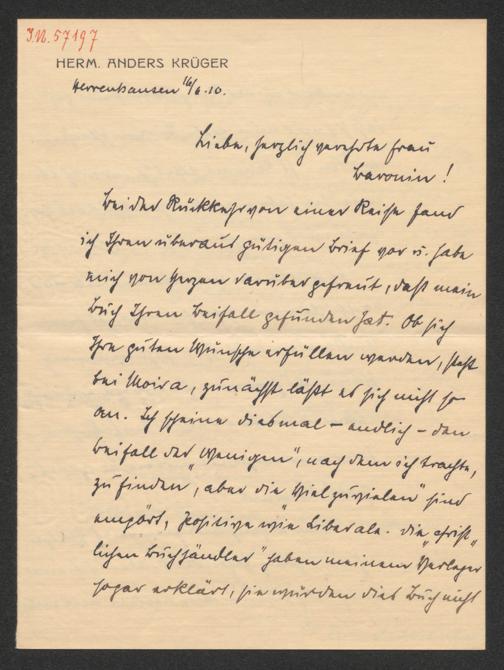 I.N. 57197
HERM. ANDERS KRÜGER
Herrenhausen 16/6.10.
Liebe, herzlich verehrte Frau
Baronin!
Bei der Rückkehr von einer Reise fand
ich Ihren überaus gütigen Brief vor u. habe
mich von Herzen darüber gefreut, daß mein
Buch Ihren Beifall gefunden hat. Ob sich
Ihre guten Wünsche erfüllen werden, steht
bei Moira, zunächst läßt es sich nicht so
an. Ich scheine diesmal – endlich – den
Beifall der „Wenigen", nach dem ich trachte,
zu finden, aber die „Vielzuvielen" sind
empört, Positive wie Liberale. Die „christ„
lichen Buchhändler" haben meinem Verleger
sogar erklärt, sie würden dies Buch nicht